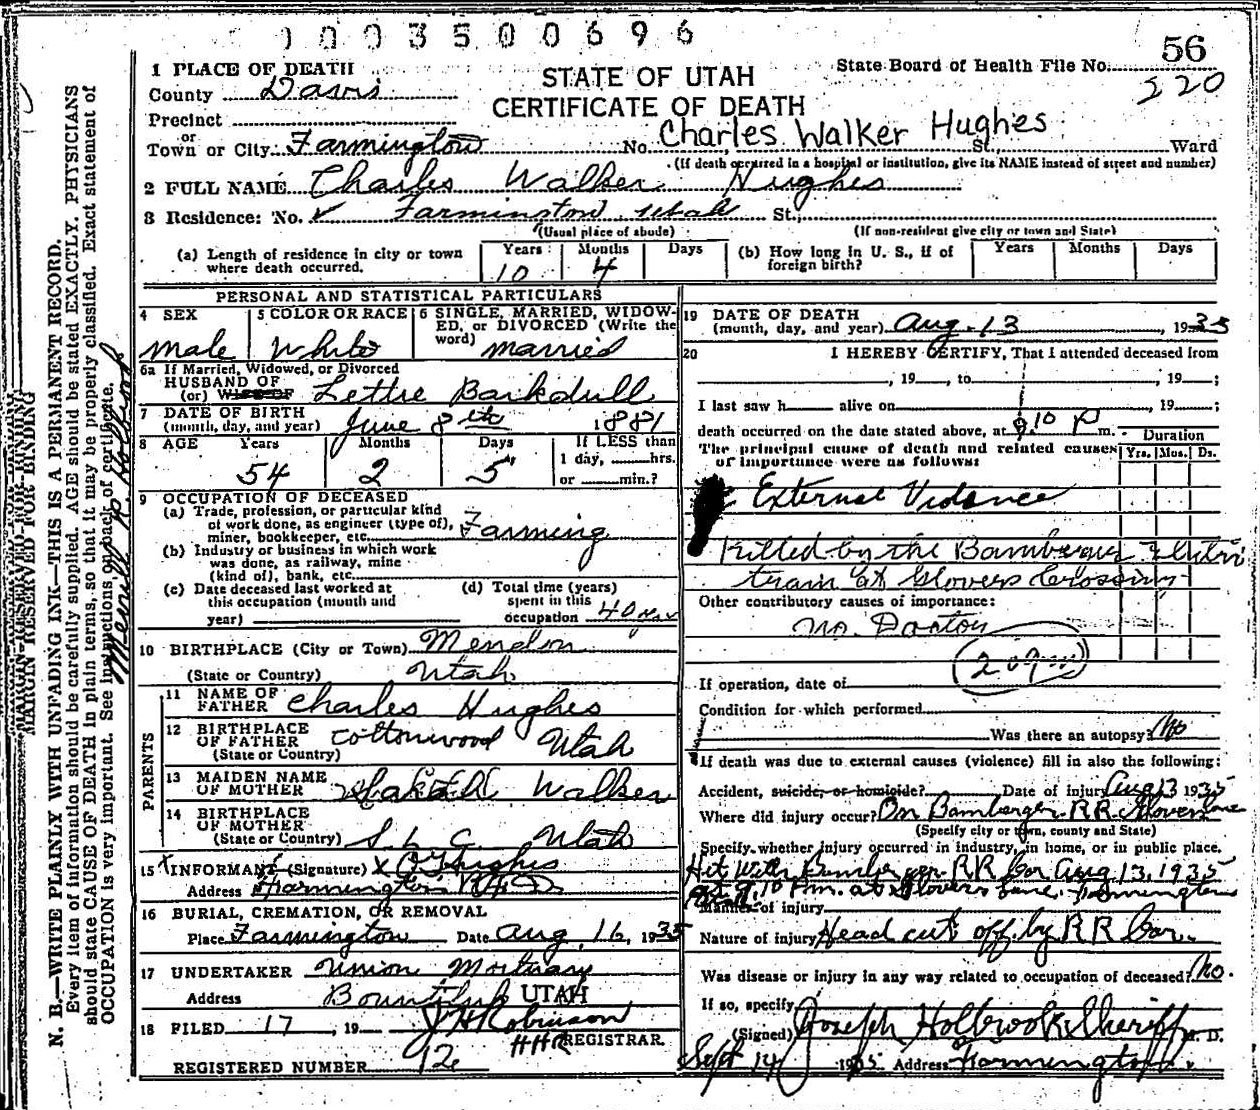 1003500696
56
220
1 PLACE OF DEATH
STATE OF UTAH
CERTIFICATE OF DEATH
State Board of Health File No.
County Davis
Precinct
or
Town or City Farmington No. Charles Walker Hughes St., Ward
(If death occurred in a hospital or institution, give its NAME instead of street and number)
2 FULL NAME Charles Walker Hughes
3 Residence: No. Farmington Utah St.,
(Usual place of abode) (If non-resident give city or town and State)
(a) Length of residence in city or town where death occurred. Years 10 Months 4 Days
(b) How long in U. S., if of foreign birth? Years Months Days
PERSONAL AND STATISTICAL PARTICULARS
4 SEX Male
5 COLOR OR RACE White
6 SINGLE, MARRIED, WIDOWED, or DIVORCED (Write the word) married
6a If Married, Widowed, or Divorced
HUSBAND OF
(or) WIFE OF Lettie Barkdull
7 DATE OF BIRTH
(month, day, and year) June 8th 1881
8 AGE Years 54 Months 2 Days 5 If LESS than 1 day, hrs. or min.?
9 OCCUPATION OF DECEASED
(a) Trade, profession, or particular kind of work done, as engineer (type of), miner, bookkeeper, etc. Farming
(b) Industry or business in which work was done, as railway, mine (kind of), bank, etc.
(c) Date deceased last worked at this occupation (month and year)
(d) Total time (years) spent in this occupation 40
10 BIRTHPLACE (City or Town) Mendon
(State or Country) Utah
PARENTS
11 NAME OF FATHER Charles Hughes
12 BIRTHPLACE OF FATHER Cottonwood Utah
(State or Country)
13 MAIDEN NAME OF MOTHER Walker
14 BIRTHPLACE OF MOTHER
(State or Country) S. L. C. Utah
15 INFORMANT (Signature) X Hughes
Address Farmington
16 BURIAL, CREMATION, OR REMOVAL
Place Farmington Date Aug 16, 1935
17 UNDERTAKER Union Mortuary
Address Bountiful UTAH
18 FILED 17, 19 Robinson
HHR REGISTRAR.
REGISTERED NUMBER 12
19 DATE OF DEATH
(month, day, and year) Aug. 13, 1935
20 I HEREBY CERTIFY, That I attended deceased from
, 19 , to , 19 ;
I last saw h alive on , 19 ;
death occurred on the date stated above, at 9:10 P m.
The principal cause of death and related causes of importance were as follows:
Duration
Yrs. Mos. Ds.
External Violence
Killed by the Bamberger
train at Glovers Crossing
Other contributory causes of importance:
No. Doctor
209
If operation, date of
Condition for which performed
Was there an autopsy? No
If death was due to external causes (violence) fill in also the following:
Accident, suicide, or homicide? Date of injury Aug 13 1935
Where did injury occur? On Bamberger RR. Glovers Lane
(Specify city or town, county and State)
Specify whether injury occurred in industry, in home, or in public place.
Hit With Bamberger RR Car Aug 13, 1935
at 9:10 P.m. at Glovers Lane, Farmington
Manner of injury
Nature of injury Head cut off by RR Car.
Was disease or injury in any way related to occupation of deceased? No.
If so, specify
(Signed) Joseph Holbrook Sheriff M. D.
Sept 14 1935 Address Farmington
MARGIN RESERVED FOR BINDING
N. B.—WRITE PLAINLY WITH UNFADING INK—THIS IS A PERMANENT RECORD.
Every item of information should be carefully supplied. AGE should be stated EXACTLY. PHYSICIANS
should state CAUSE OF DEATH in plain terms, so that it may be properly classified. Exact statement of
OCCUPATION is very important. See instructions on back of certificate.